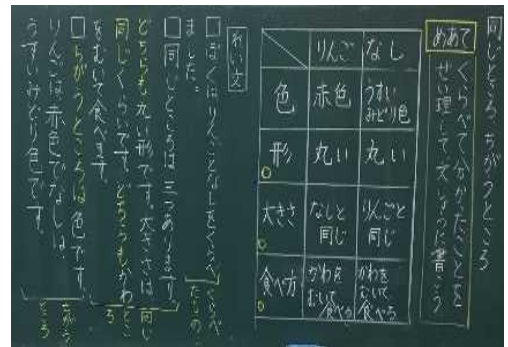 同じところ、ちがうところ
めあて
くらべて分かったことを
せい理して文しょうに書こう
りんご
なし
色
赤色
うすい
みどり色
形
丸い
丸い
大きさ
なしと
同じ
りんごと
同じ
食べ方
かわを
むいて
食べる
かわを
むいて
食べる
れい文
ぼくはりんごとなしをくらべ
ました。
同じところは三つあります。
どちらも丸い形です。大きさは
同じくらいです。どちらもかわ
をむいて食べます。
ちがうところは色です。
りんごは赤色でなしは、
うすいみどり色です。
くらべ
たもの
同じ
とこ
ろ
ちがう
ところ